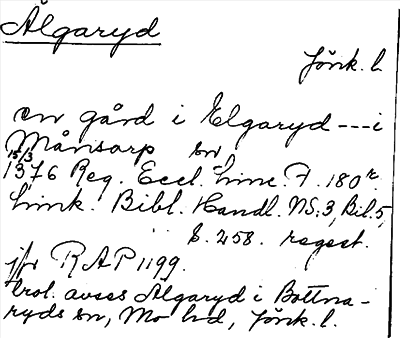 Älgaryd
Jönk. l.
en gård i Elgaryd --- i
Månsarp sn,
15/3
1376 Reg. Eccl. Linc. F. 180r.
Link. Bibl. Handl. NS:3, Bil. 5,
s. 258. regest.
jfr RAP 1199.
trol. avses Älgaryd i Bottna-
ryds sn, Mo hd, Jönk. l.